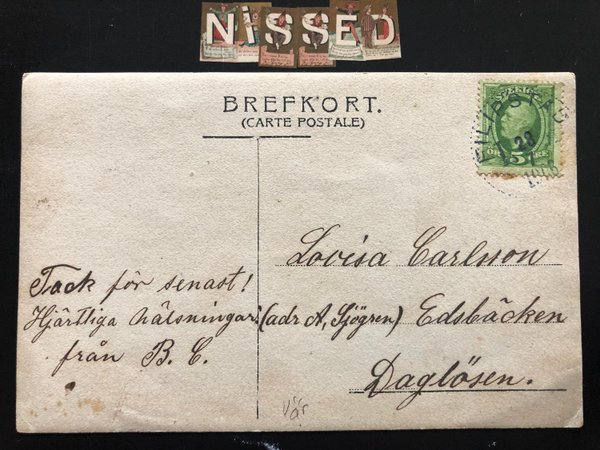 NiSSED
BREFKORT.
(CARTE POSTALE)
SVERIGE
5
ÖRE
FILIPSTAD
28
Lovisa Carlsson
(adr A, Sjögren) Edsbäcken
Daglösen.
Tack för senast!
Hjärtliga hälsningar
från B. C.